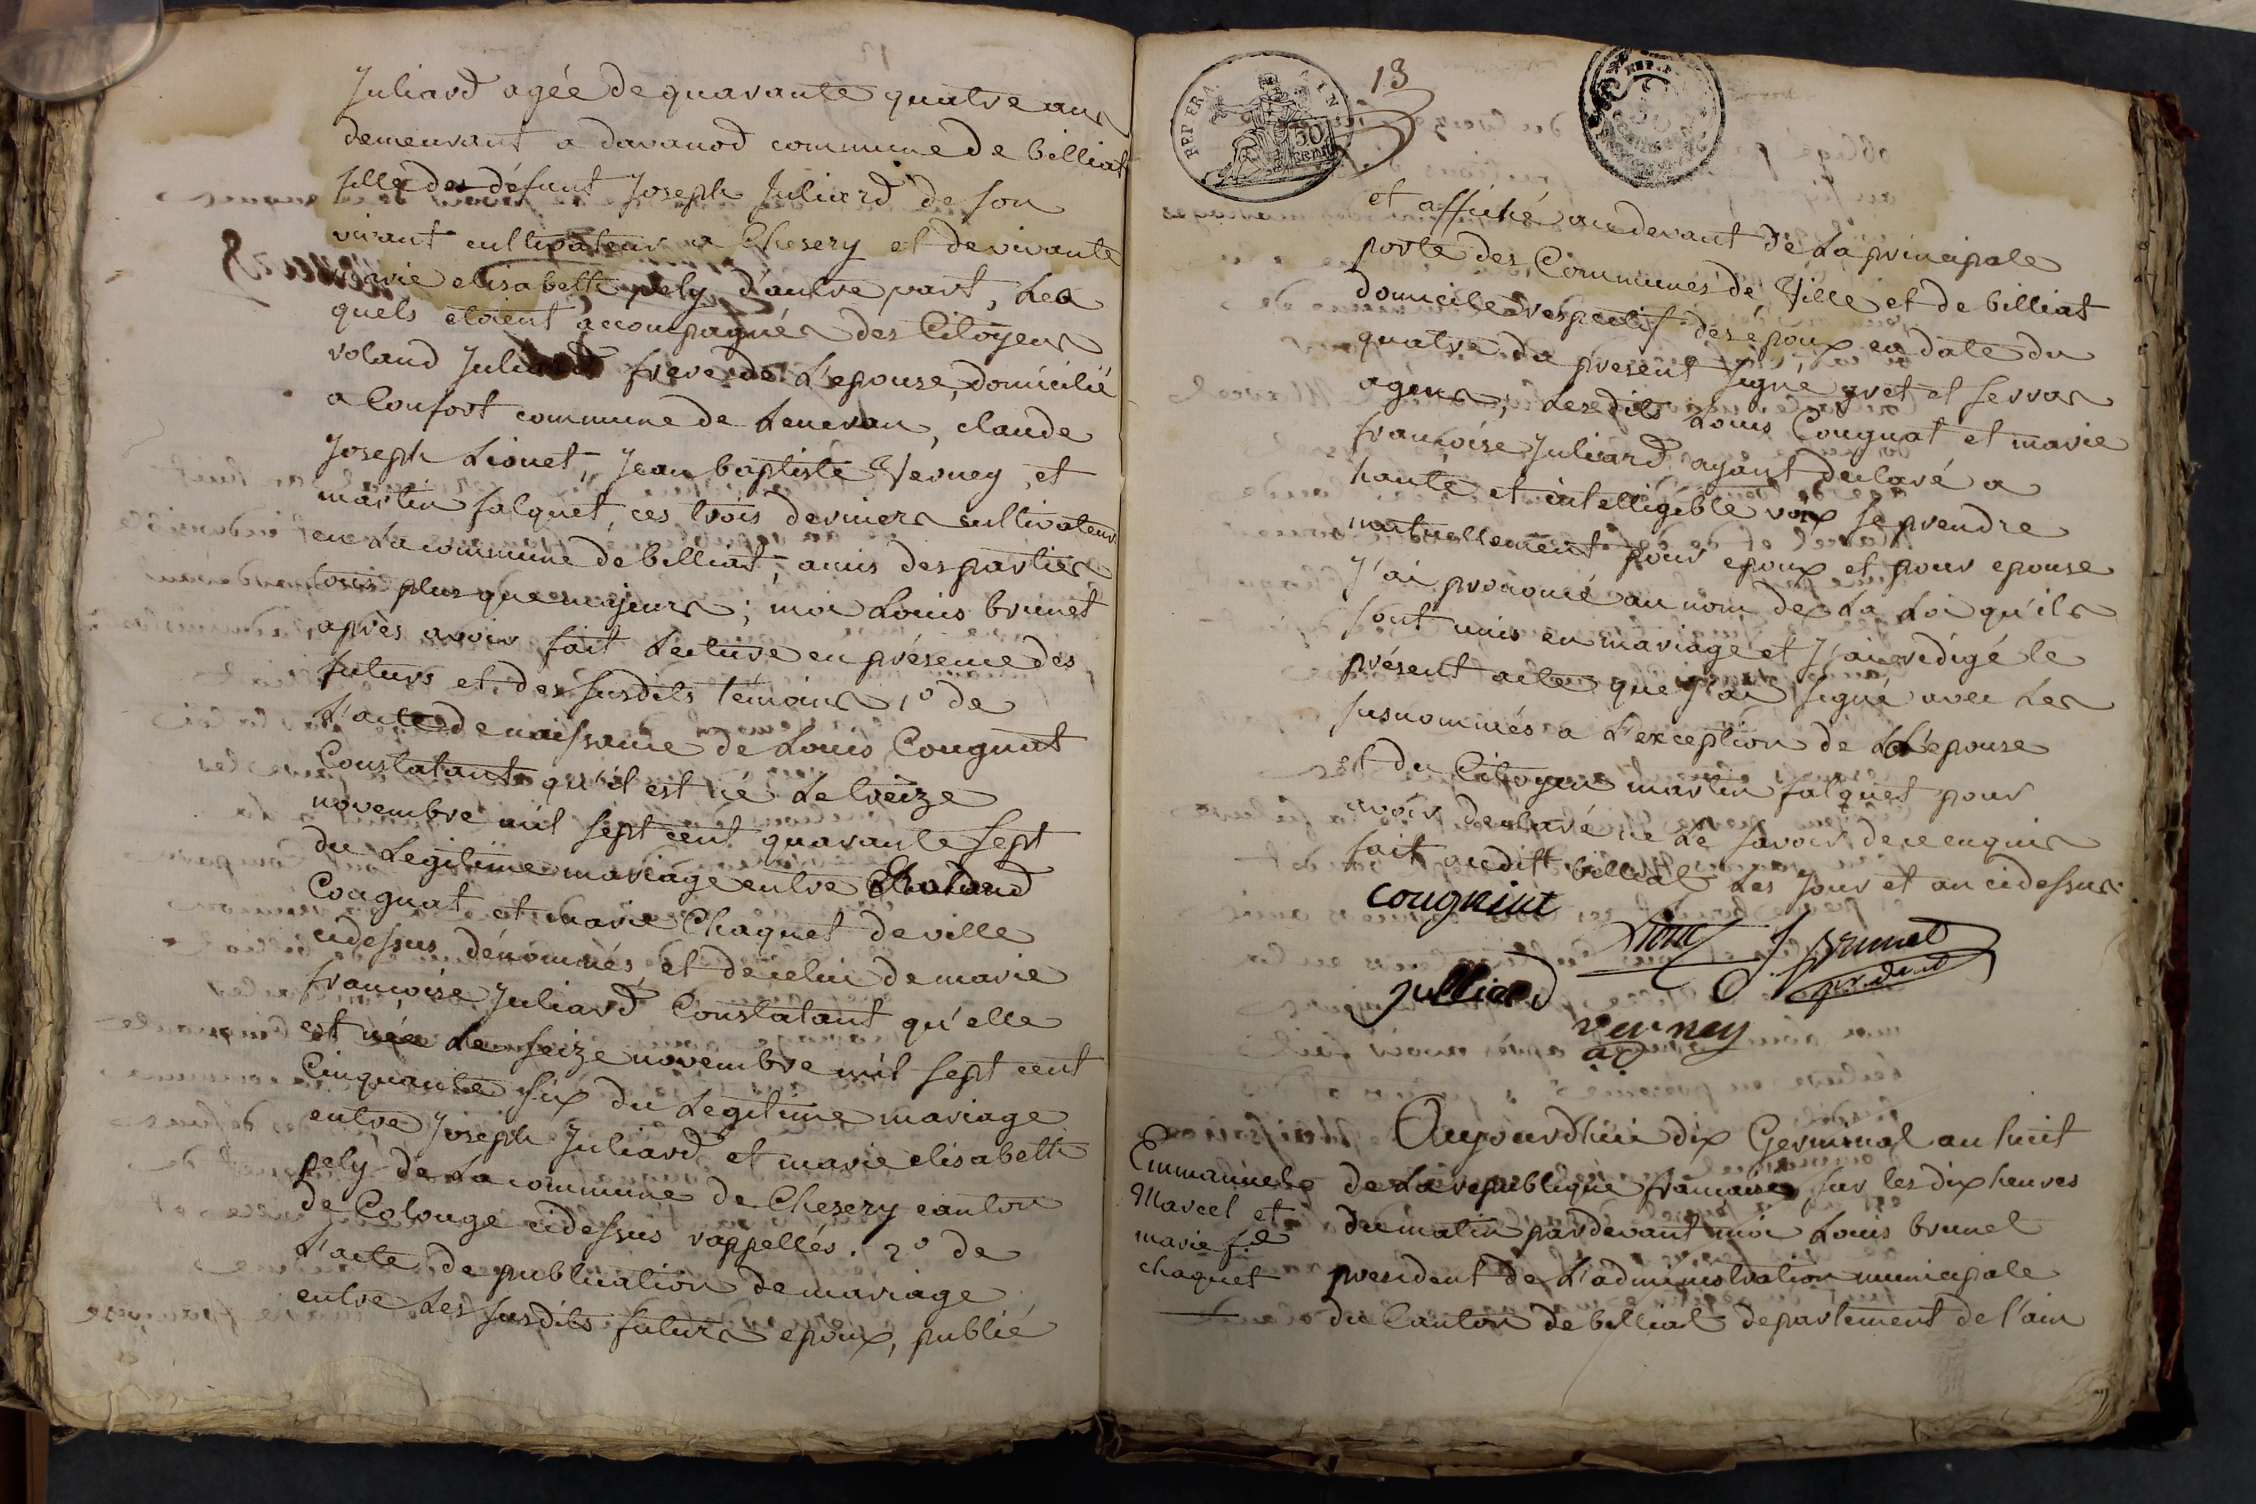 Juliard agée de quarante quatre ans
demeurant a davanod commune de billiat
fille des défunt Joseph Juliard de son
vivant cultivateur a Chesery et de vivante
marie elisabeth pely d'autre part, Les
quels etoient accompagnés des Citoyens
roland Juliard frere de L'epouse, domicilié
a Confort commune de Lancran, claude
Joseph Lionet, Jean baptiste Verney, et
martin falquet, ces trois derniers cultivateurs
en La commune de billiat, amis des parties
tous plus que majeurs; moi Louis brunet
après avoir fait Lecture en présence des
futurs et des susdits témoins 1º de
L'acte de naissance de Louis Cougnat
Constatant qu'il est né Le treize
novembre mil sept cent quarante sept
du Legitime mariage entre
Cougnat et marie Chaquet de ville
cidessus dénommés, et de celui de marie
françoise Juliard Constatant qu'elle
est née Le seize novembre mil sept cent
Cinquante six du Legitime mariage
entre Joseph Juliard et marie elisabeth
pely de La commune de Chesery canton
de Colonge cidessus rappellés. 2º de
L'acte de publication de mariage
entre Les susdits futurs epoux, publié
REP. FRA.
50
CENT
13
REP. F.
et affiché au devant de La principale
porte des Communes de Ville et de billiat
domicile respectif des époux en date du
quatre du present signé gret et serras
agens, Lesdits Louis Cougnat et marie
françoise Juliard ayant declaré a
haute et intelligible voix se prendre
mutuellement pour epoux et pour epouse
J'ai prononcé au nom de La Loi qu'ils
sont unis en mariage et J'ai rédigé le
présent acte que J'ai signé avec Les
susnommés a L'exception de L'epouse
et du Citoyen martin falquet pour
avoir declaré ne Le savoir de ce enquis
fait audit billiat Les Jour et an cidessus.
cougniut
Brunet
president
Julliard
verney
Aujourdhui dix Germinal an huit
de La république française sur les dix heures
du matin pardevant moi Louis brunet
president de L'administration municipale
du Canton de billiat departement de l'ain
Emmanuel
Marcel et
marie fse
chaquet